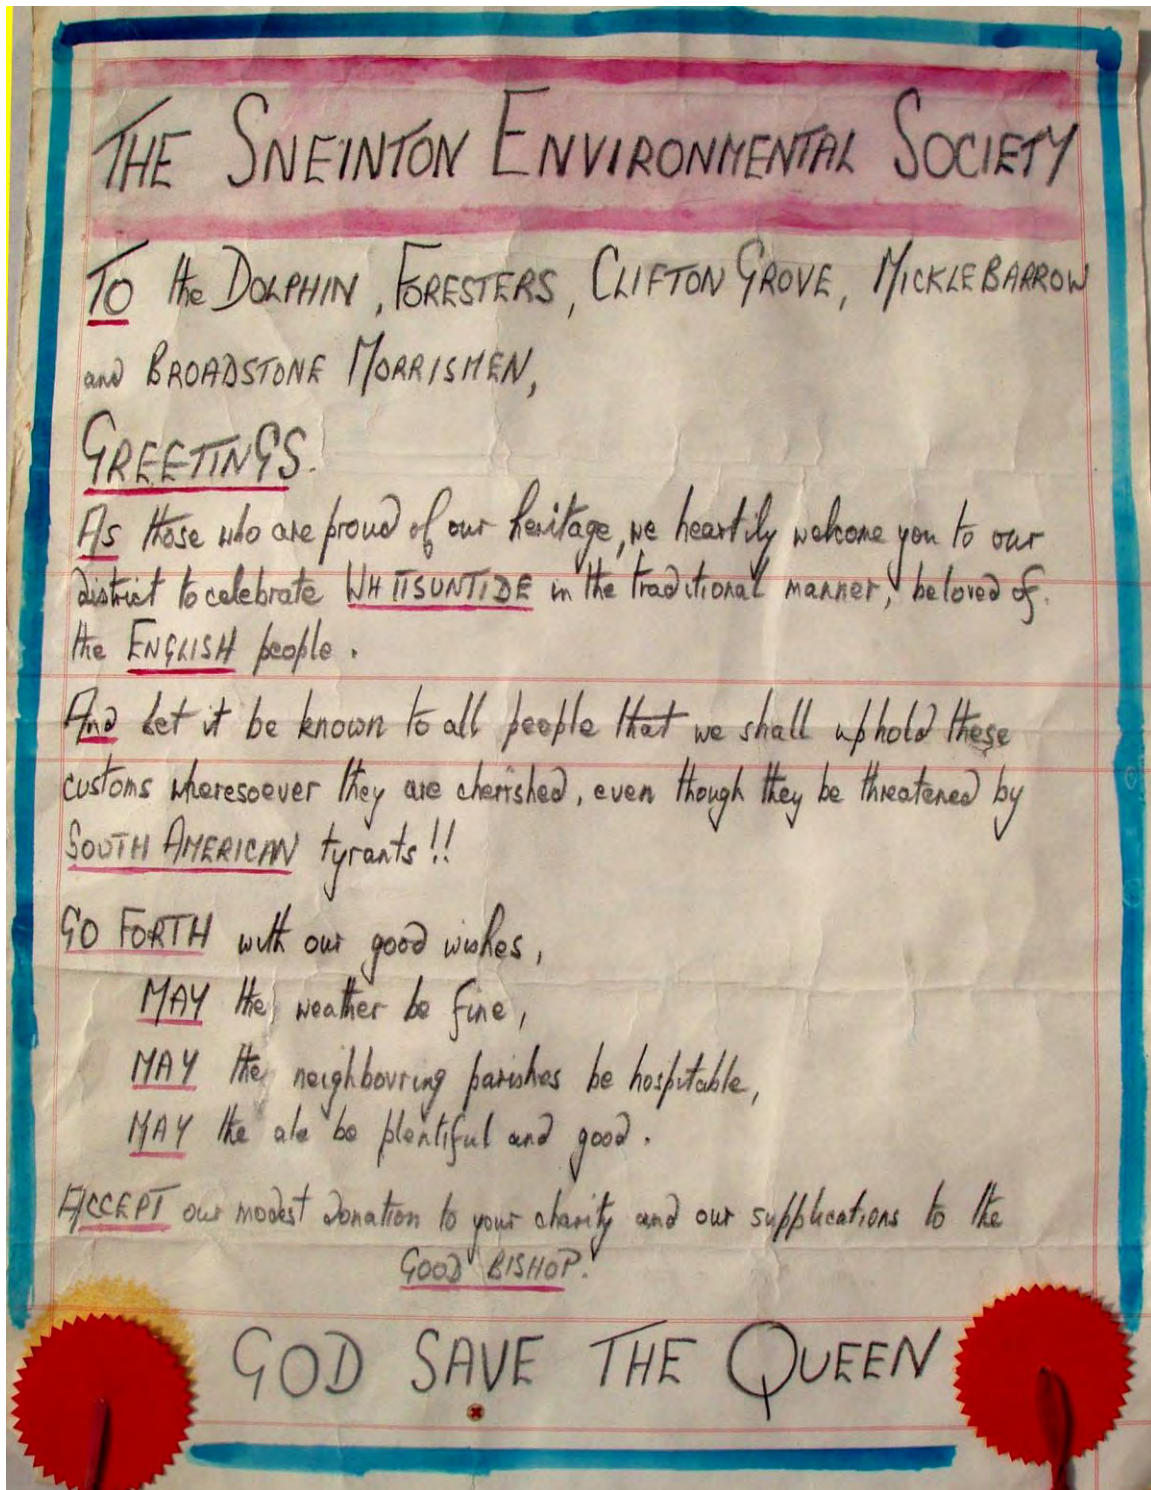 THE SNEINTON ENVIRONMENTAL SOCIETY
TO the DOLPHIN, FORESTERS, CLIFTON GROVE, MICKLEBARROW
and BROADSTONE MORRISMEN,
GREETINGS.
As those who are proud of our heritage, we heartily welcome you to our
district to celebrate WHITSUNTIDE in the traditional manner, beloved of.
the ENGLISH people.
And Let it be known to all people that we shall uphold these
customs wheresoever they are cherished, even though they be threatened by
SOUTH AMERICAN tyrants!!
GO FORTH with our good wishes,
MAY the weather be fine,
MAY the neighbouring parishes be hospitable,
MAY the ale be plentiful and good.
ACCEPT our modest donation to your charity and our supplications to the
GOOD BISHOP.
GOD SAVE THE QUEEN